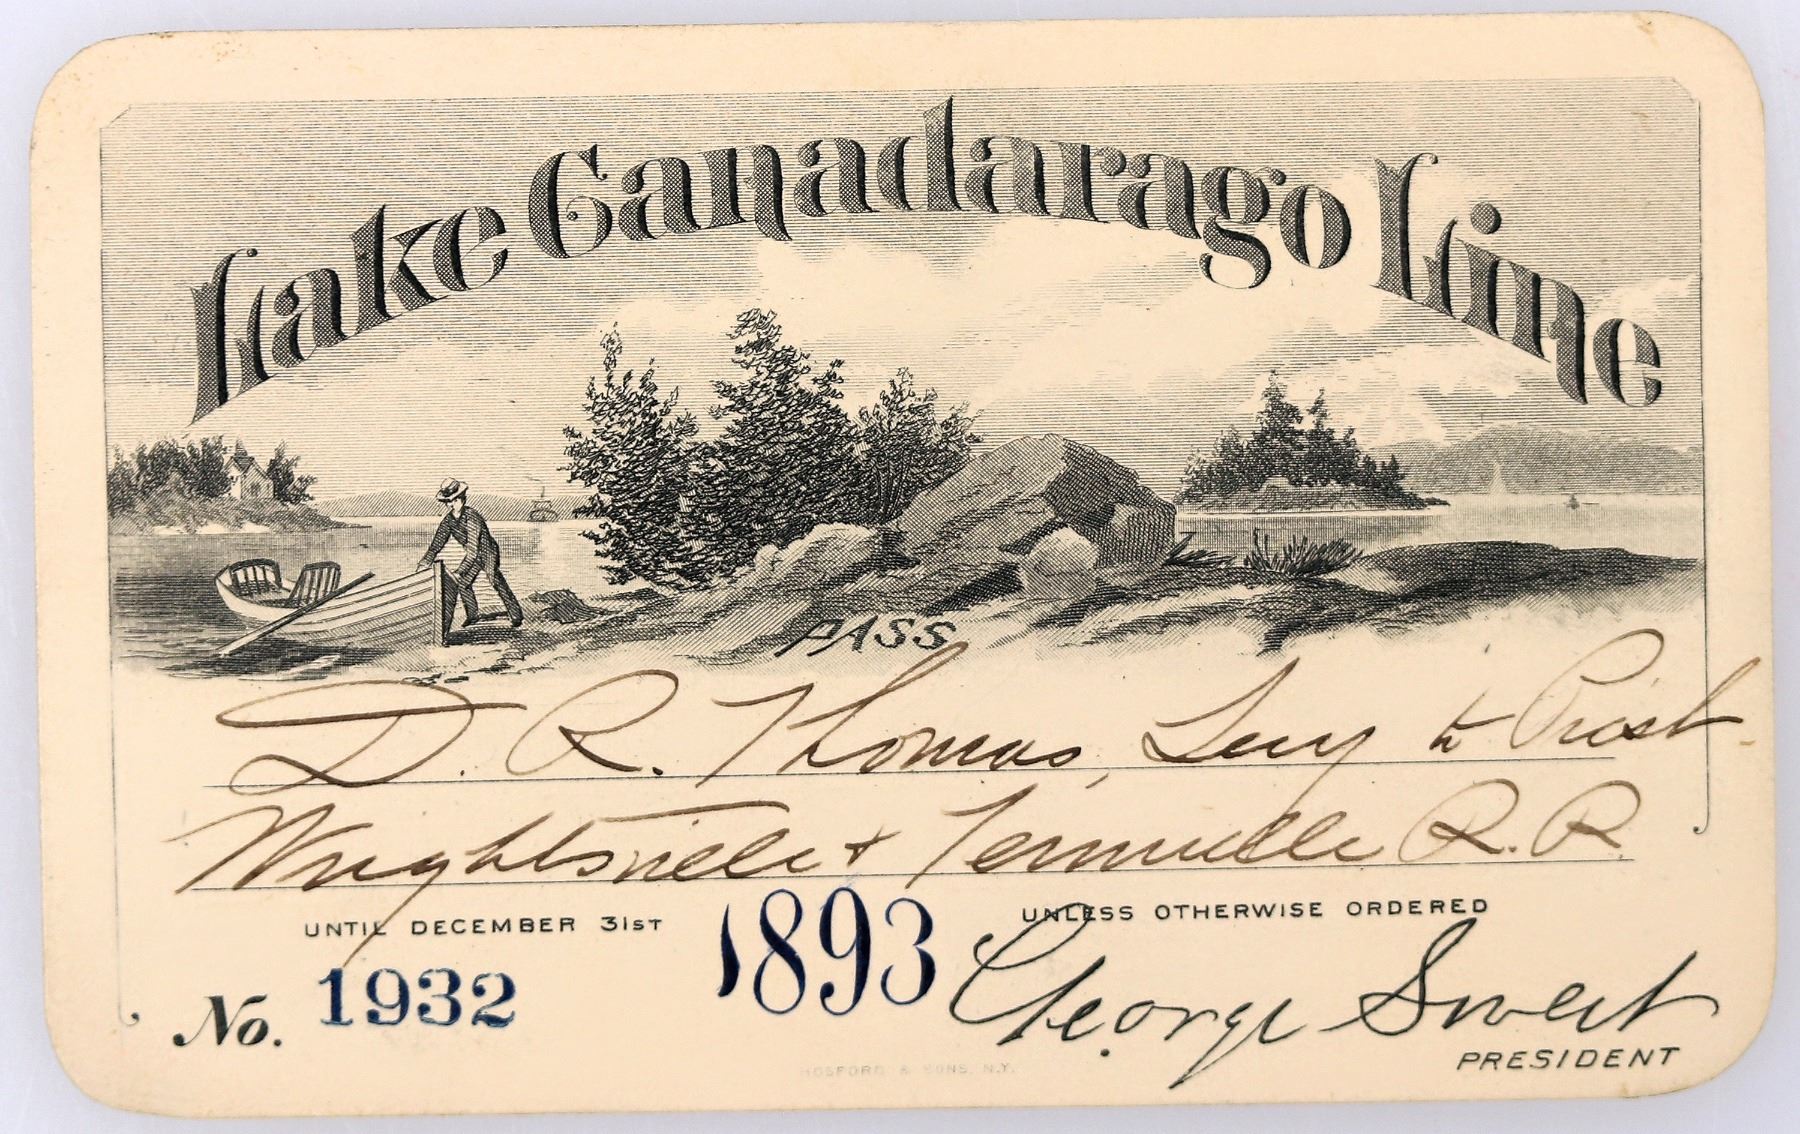 Lake Canadarago Line
PASS
D. R. Thomas, Secy to Prest.
Wrightsville & Tennille R. R.
UNTIL DECEMBER 31ST 1893 UNLESS OTHERWISE ORDERED
No. 1932
George Sweet
PRESIDENT
HOSFORD & SONS, N.Y.